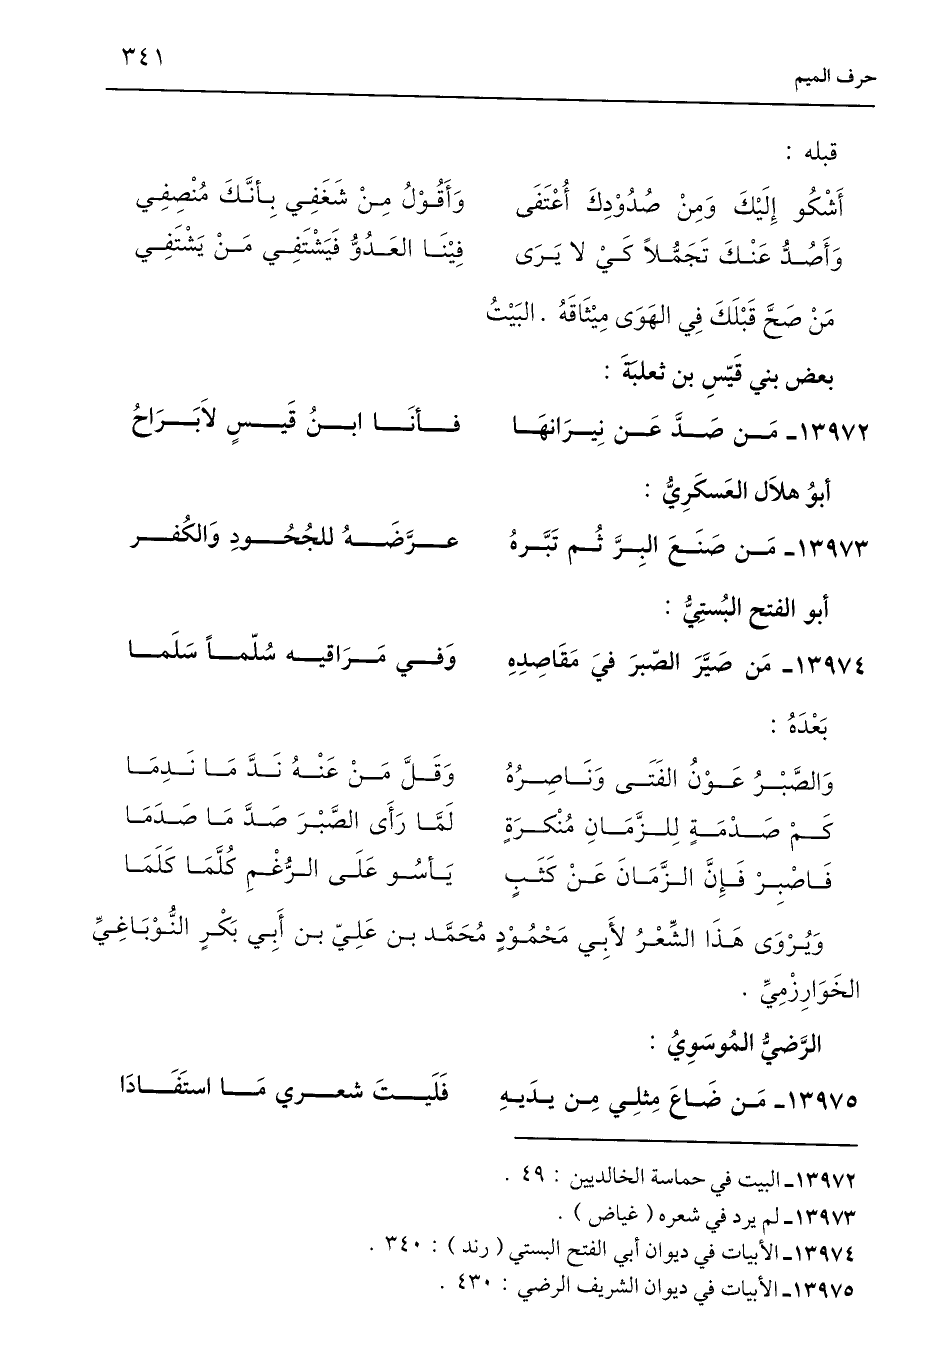 ٣٤١
حرف الميم
قبله :
أَشْكُو إِلَيْكَ وَمِنْ صُدُوْدِكَ أُعْتَفَى وَأَقُوْلُ مِنْ شَغَفِي بِأنَّكَ مُنْصِفِي
وَأَصُدُّ عَنْكَ تَجَمُّلاً كَيْ لا يَرَى فِيْنَا العَدُوُّ فَيَشْتَفِي مَنْ يَشْتَفِي
مَنْ صَحَّ قَبْلَكَ فِي الهَوَى مِيْثَاقَهُ . البَيْتُ
بعض بني قَيّسِ بن ثعلبَةَ :
١٣٩٧٢ـ مَن صَدَّ عَن نِيرَانهَا فأنَا ابنُ قَيسٍ لاَبَرَاحُ
أبوُ هلاَل العَسكَرِيُّ :
١٣٩٧٣ـ مَن صَنَعَ البِرَّ ثُم تَبَّرهُ عرَّضَهُ للجُحُودِ وَالكُفر
أبو الفتح البُستِيُّ :
١٣٩٧٤ـ مَن صَيَّرَ الصّبرَ فيَ مَقَاصِدِهِ وَفي مَرَاقيه سُلّماً سَلَما
بَعْدَهُ :
وَالصَّبْرُ عَوْنُ الفَتَى وَنَاصِرُهُ وَقَلَّ مَنْ عَنْهُ نَدَّ مَا نَدِمَا
كَمْ صَدْمَةٍ لِلزَّمَانِ مُنْكرَةٍ لَمَّا رَأَى الصَّبْرَ صَدَّ مَا صَدَمَا
فَاصْبِرْ فَإِنَّ الزَّمَانَ عَنْ كَثَبٍ يَأسُو عَلَى الرُّغْمِ كُلَّمَا كَلَمَا
وَيُرْوَى هَذَا الشِّعْرُ لأَبِي مَحْمُوْدٍ مُحَمَّد بن عَلِيّ بن أَبِي بَكْرٍ النُّوْبَاغِيِّ
الخَوَارِزْمِيِّ .
الرَّضيُّ المُوسَوِيُ :
١٣٩٧٥ـ مَن ضَاعَ مِثلِي مِن يدَيهِ فَلَيتَ شعري مَا استَفَادَا
١٣٩٧٢ـ البيت في حماسة الخالديين : ٤٩ .
١٣٩٧٣ـ لم يرد في شعره ( غياض ) .
١٣٩٧٤ـ الأبيات في ديوان أبي الفتح البستي ( رند ) : ٣٤٠ .
١٣٩٧٥ـ الأبيات في ديوان الشريف الرضي : ٤٣٠ .